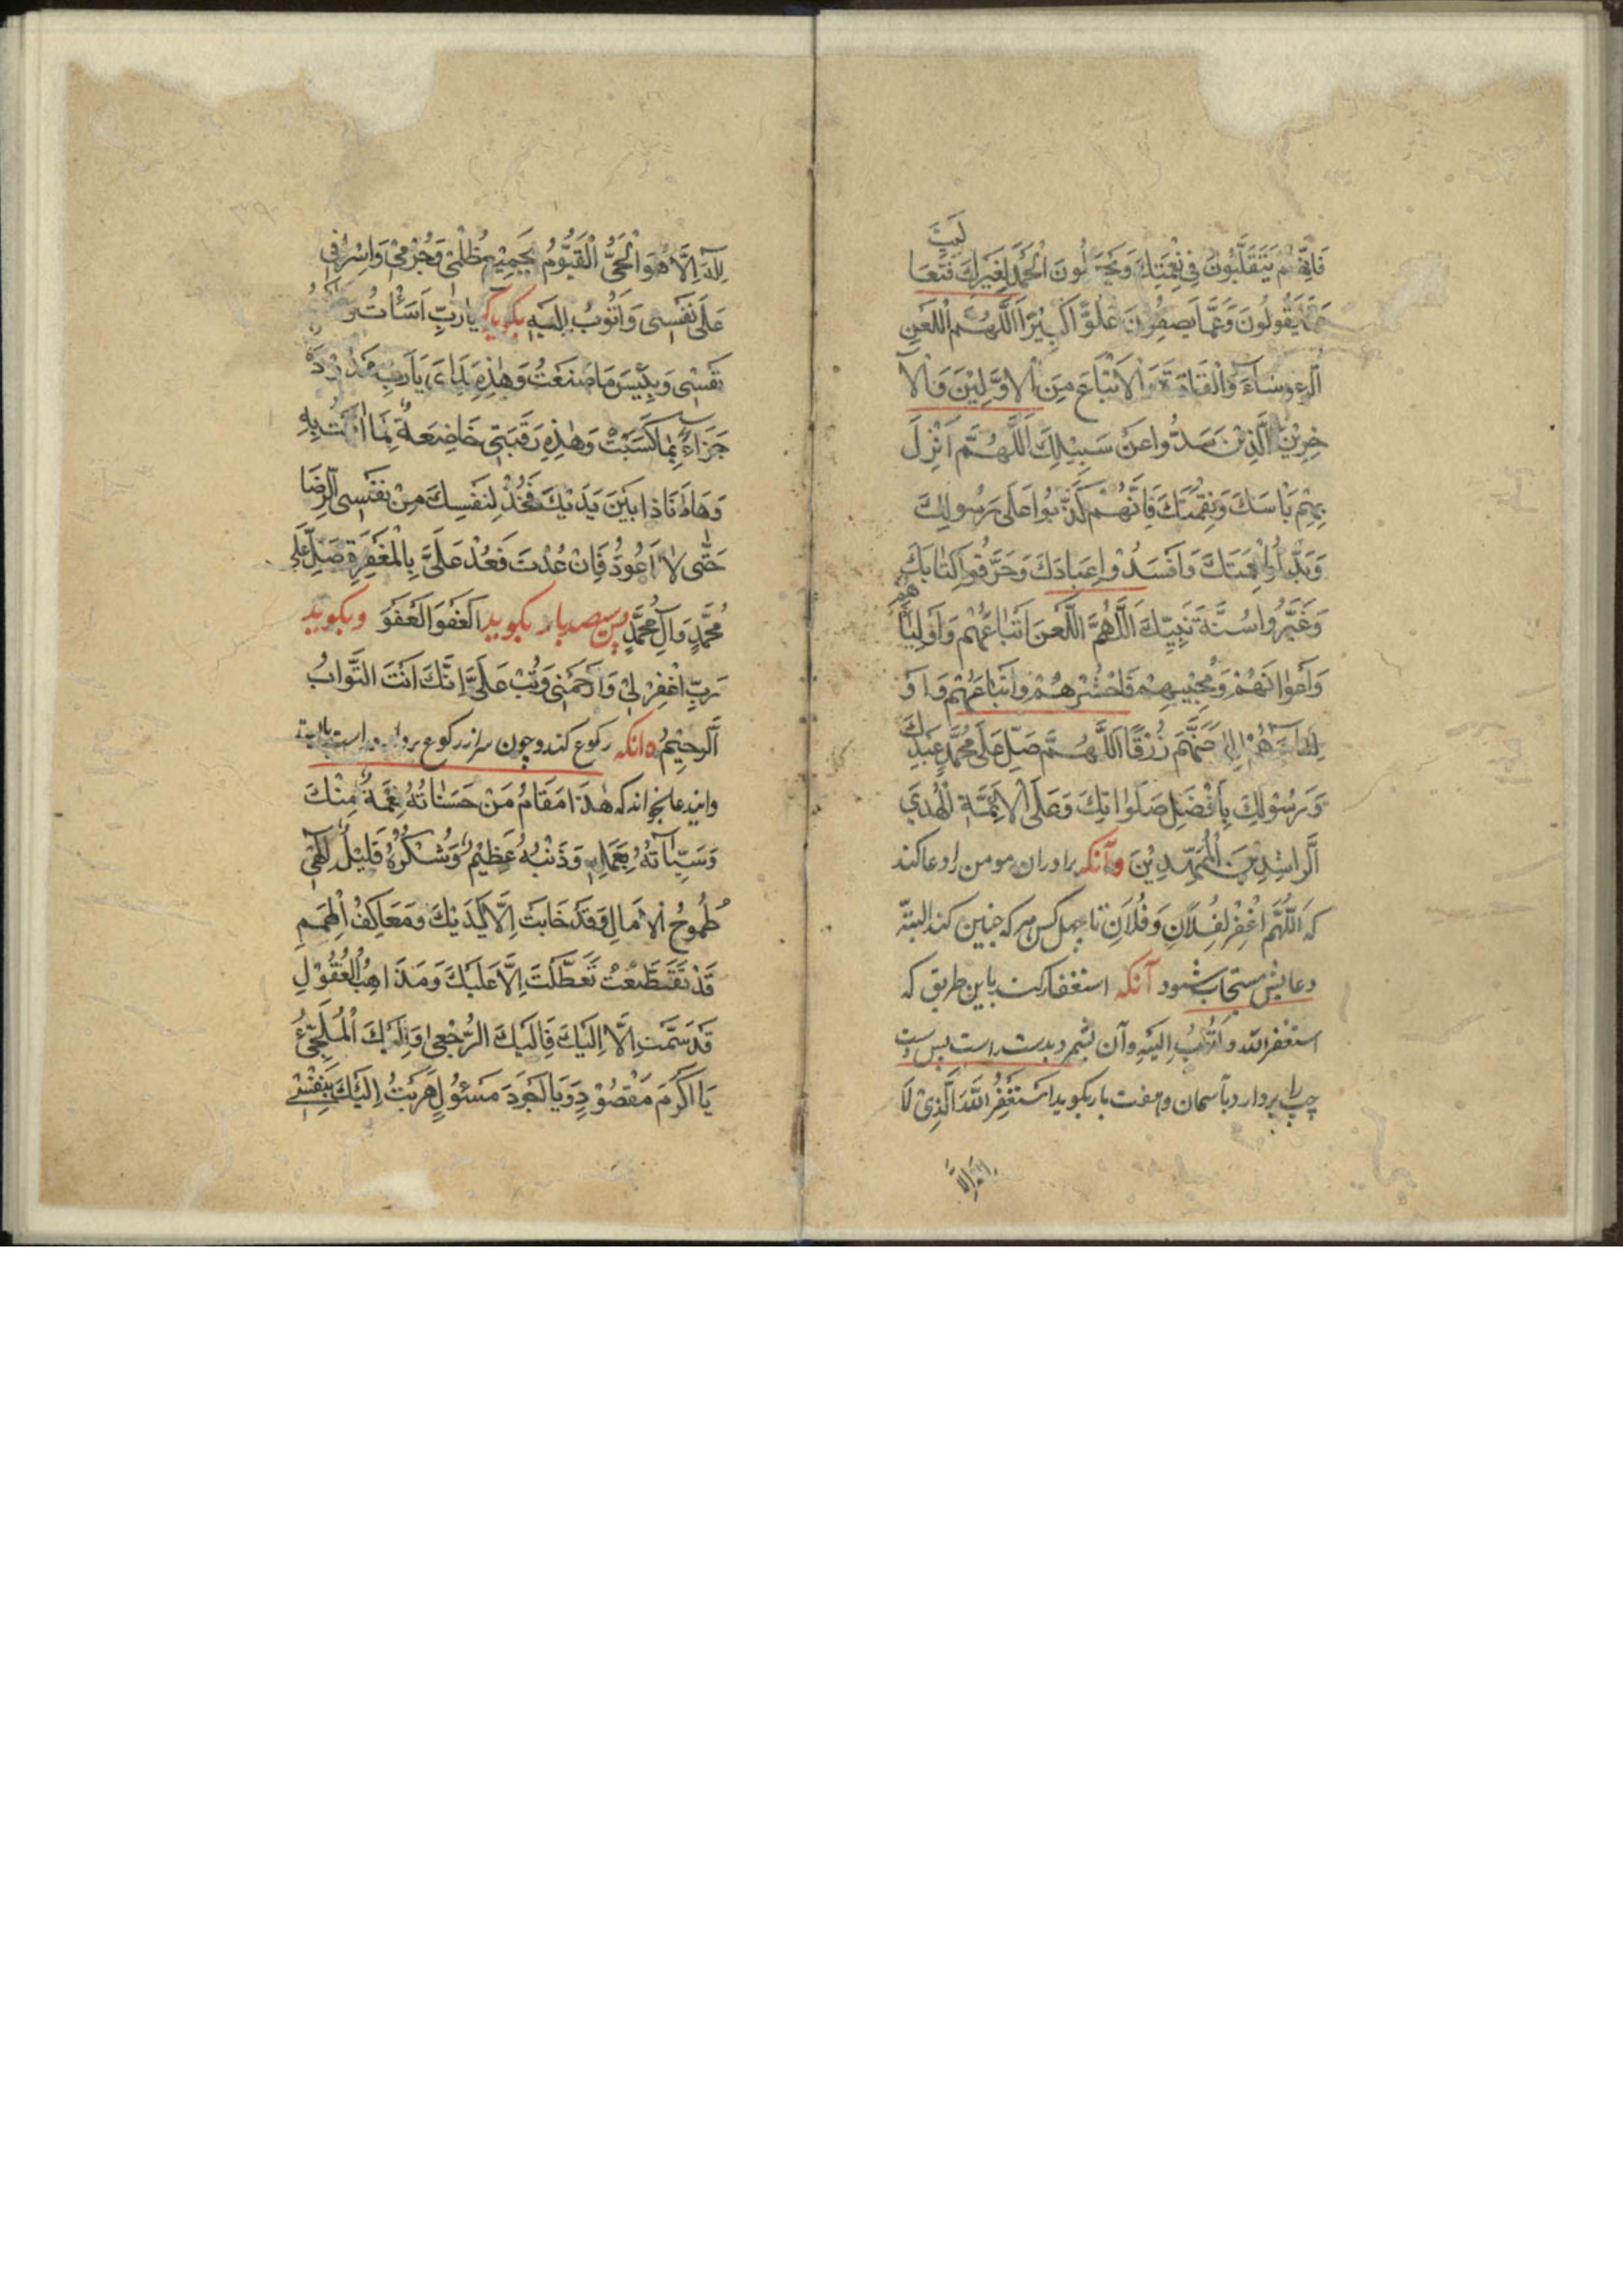 لَيْتَ
فَاِنَّهُمْ يَتَقَلَّبُونَ فِى نِعْمَتِكَ وَيَجْعَلُونَ الْحَمْدَ لِغَيْرِكَ فَتَعَا
عَمَّا يَقُولُونَ وَعَمَّا يَصِفُونَ عُلُوًّا كَبِيْرًا اَللَّهُمَّ الْعَنِ
الرُّءُوسَآءَ وَالْقَادَةَ وَالْاَتْبَاعَ مِنَ الْاَوَّلِيْنَ وَالْاٰ
خِرِيْنَ الَّذِيْنَ صَدُّوا عَنْ سَبِيْلِكَ اَللَّهُمَّ اَنْزِلْ
بِهِمْ بَاْسَكَ وَنِقْمَتَكَ فَاِنَّهُمْ كَذَّبُوا عَلَى رَسُولِكَ
وَبَدَّلُوا نِعْمَتَكَ وَاَفْسَدُوْا عِبَادَكَ وَحَرَّفُوا كِتَابَكَ
وَغَيَّرُوا سُنَّةَ نَبِيِّكَ اَللَّهُمَّ الْعَنْ اَتْبَاعَهُمْ وَاَوْلِيَآءَ
هُمْ
وَاَعْوَانَهُمْ وَمُحِبِّيهِمْ وَاحْشُرْهُمْ وَاَتْبَاعَهُمْ وَاَوْ
اِلَى جَهَنَّمَ زُرْقًا اَللَّهُمَّ صَلِّ عَلَى مُحَمَّدٍ عَبْدِكَ
وَرَسُوْلِكَ بِاَفْضَلِ صَلَوَاتِكَ وَعَلَى الْاَئِمَّةِ الْهُدَى
الرَّاشِدِيْنَ الْمَهْدِيِّيْنَ وآنکه برادران مومن را دعا کند
که اَللَّهُمَّ اغْفِرْ لِفُلَانِ وَفُلَانِ تا چهل کس هر که چنین کند البتّه
دعایش مستجاب شود آنکه استغفار کند باین طریق که
استغفر الله واتوب الیه وآن بشمرد بدست راست پس دست
چپ را بردارد بآسمان وهفت بار بکوید اَسْتَغْفِرُ اللّٰهَ الَّذِىْ لَا
اِلٰهَ اِلَّا
اِلٰهَ اِلَّا هُوَ الْحَىُّ الْقَيُّوْمُ بِجَمِيْعِ ظُلْمِىْ وَجُرْمِىْ وَاِسْرَافِى
عَلَى نَفْسِى وَاَتُوْبُ اِلَيْهِ بکویدکه يَا رَبِّ اَسَأْتُ وَظَلَمْتُ
نَفْسِى وَبِئْسَ مَا صَنَعْتُ وَهٰذِهِ يَدَاىَ يَا رَبِّ
جَزَآءً بِمَا كَسَبَتْ وَهٰذِهِ رَقَبَتِى خَاضِعَةٌ لِمَا اَتَيْتُ بِهِ
وَهَا اَنَاذَا بَيْنَ يَدَيْكَ فَخُذْ لِنَفْسِكَ مِنْ نَفْسِى الرِّضَا
حَتّٰى لَا اَعُوْدُ فَاِنْ عُدْتُ فَعُدْ عَلَىَّ بِالْمَغْفِرَةِ صَلِّ عَلَى
مُحَمَّدٍ وَآلِ مُحَمَّدٍ پس سیصد بار بکوید اَلْعَفْوَ الْعَفْوَ وبکوید
رَبِّ اغْفِرْ لِىْ وَارْحَمْنِى وَتُبْ عَلَىَّ اِنَّكَ اَنْتَ التَّوَّابُ
الرَّحِيْمُ وانکه رکوع کند وچون سر از رکوع بردارد راست بایستد
واین دعا بخواند که هٰذَا مَقَامُ مَنْ حَسَنَاتُهُ نِعْمَةٌ مِنْكَ
وَسَيِّئَاتُهُ بِعَمَلِهِ وَذَنْبُهُ عَظِيْمٌ وَشُكْرُهُ قَلِيْلٌ اِلٰهِى
طُمُوْحُ الْاٰمَالِ قَدْ خَابَتْ اِلَّا لَدَيْكَ وَمَعَاكِفُ الْهِمَمِ
قَدْ تَقَطَّعَتْ تَعَطَّلَتْ اِلَّا عَلَيْكَ وَمَذَاهِبُ الْعُقُوْلِ
قَدْ سَمَتْ اِلَّا اِلَيْكَ فَاِلَيْكَ الرُّجْعٰى وَاِلَيْكَ الْمُلْتَجَئُ
يَا اَكْرَمَ مَقْصُوْدٍ وَيَا اَجْوَدَ مَسْئُوْلٍ هَرَبْتُ اِلَيْكَ بِنَفْسِىْ